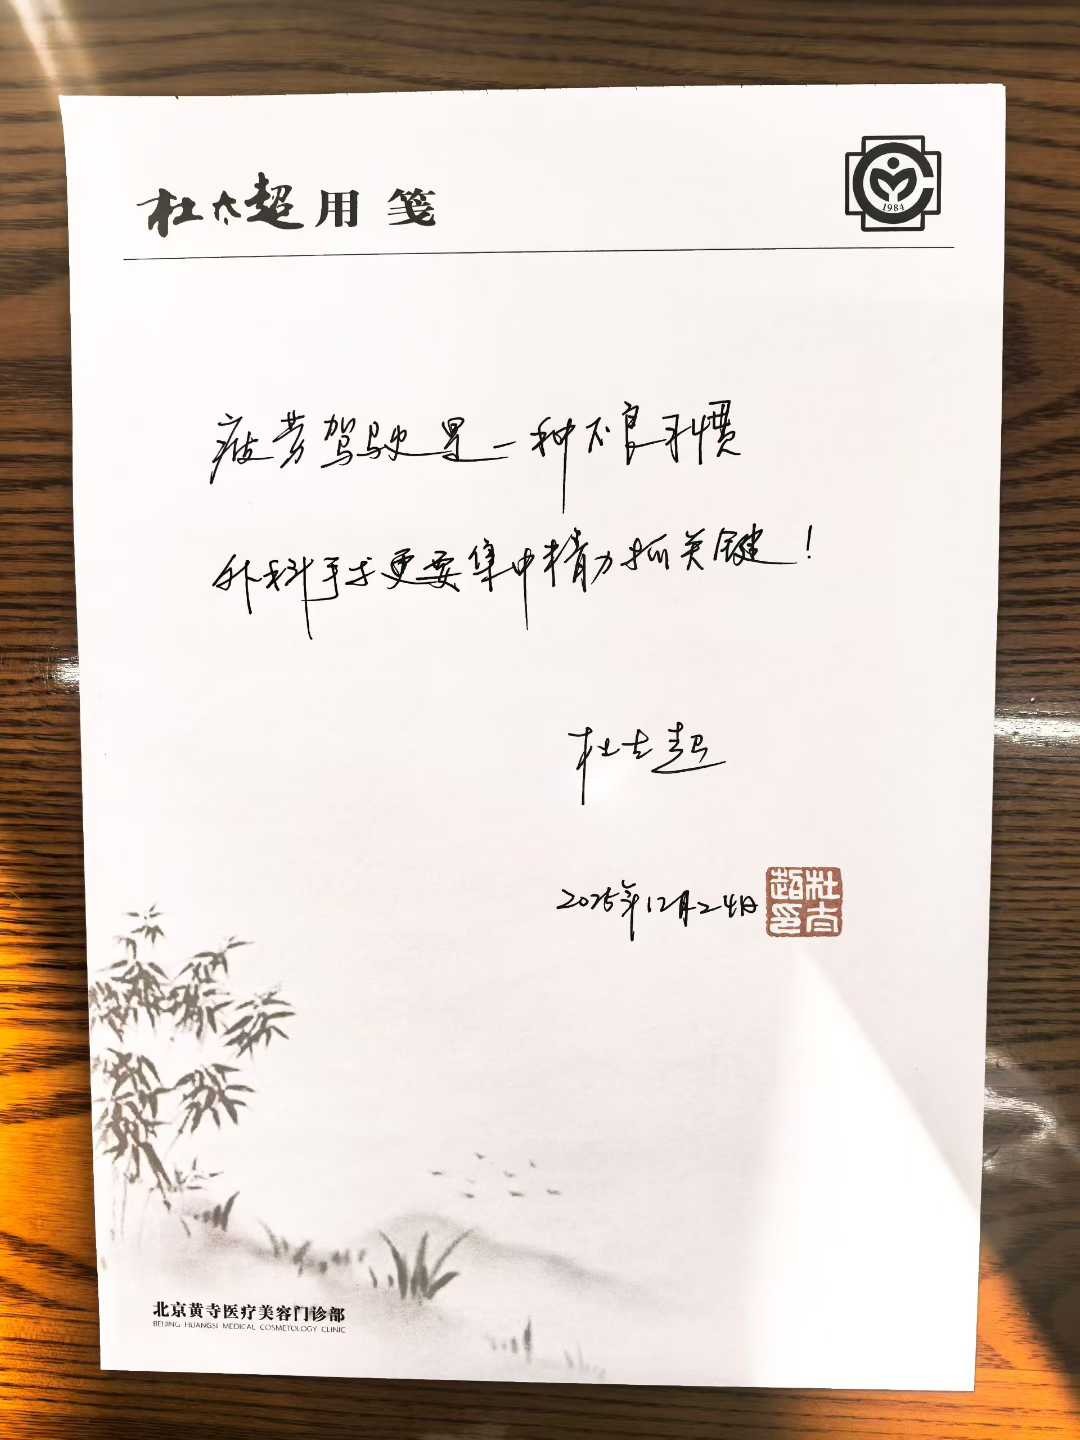 杜太超用笺
1984
疲劳驾驶是一种不良习惯
外科手术更要集中精力抓关键！
杜太超
2025年12月24日
杜太超印
北京黄寺医疗美容门诊部
BEIJING HUANGSI MEDICAL COSMETOLOGY CLINIC